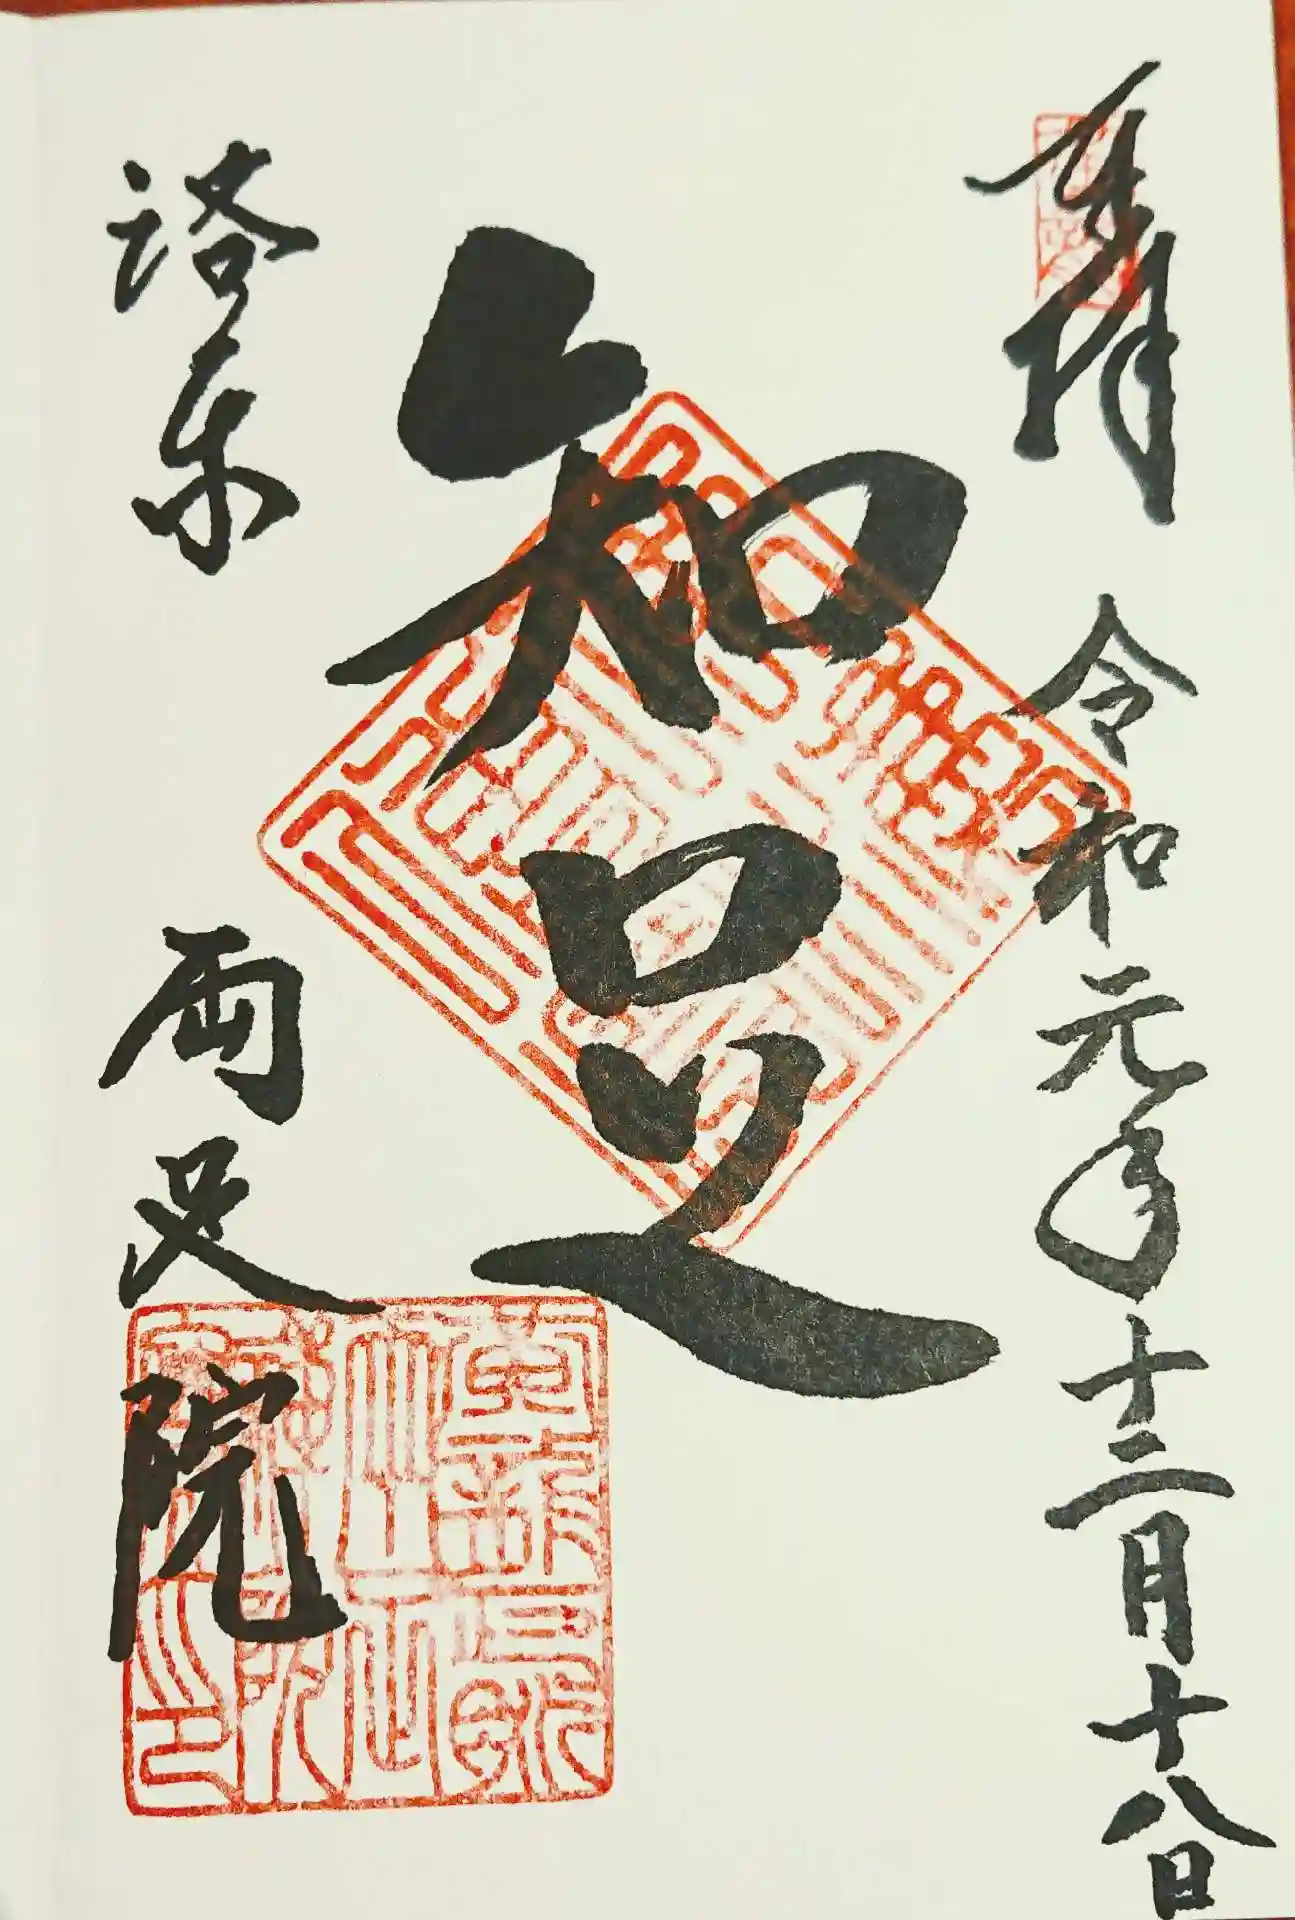 奉拝 令和元年十二月十八日
知足
洛東 両足院